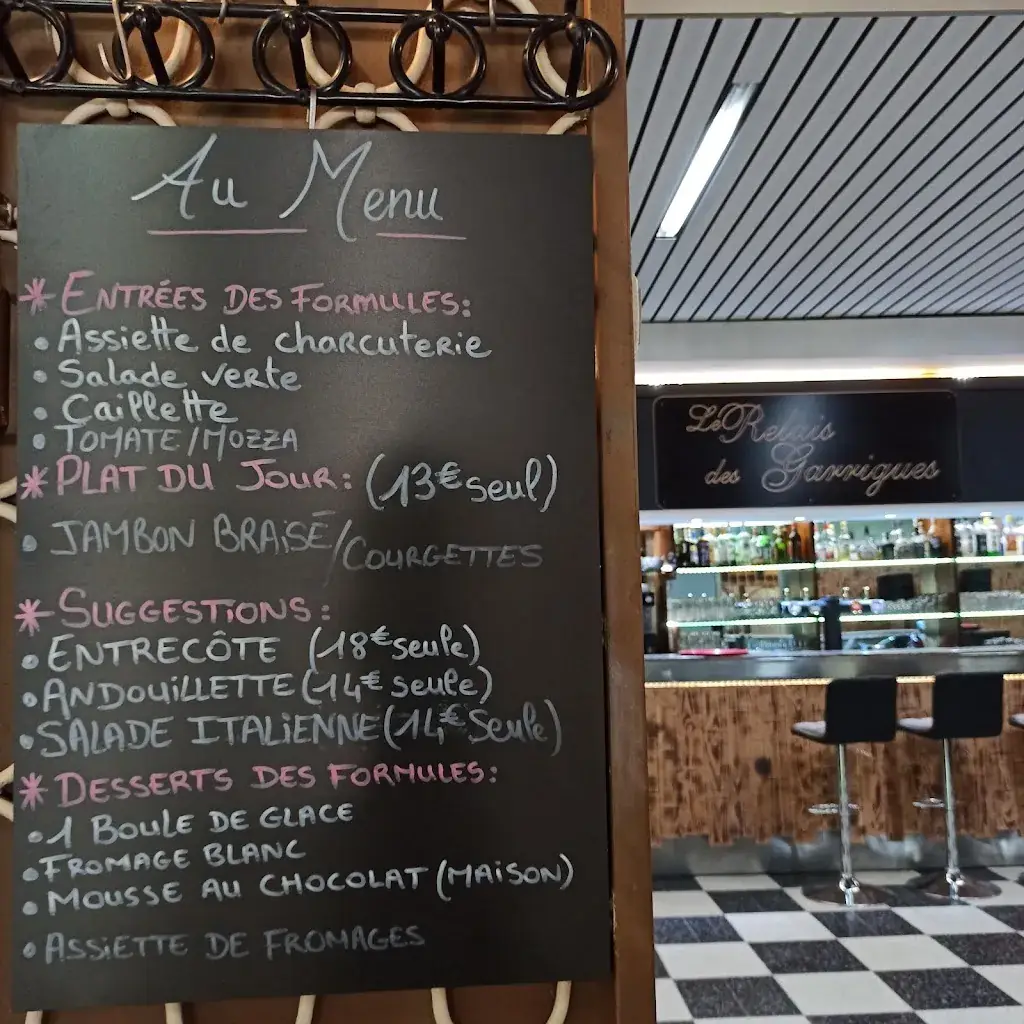 Au Menu
* ENTRÉES DES FORMULES:
• Assiette de charcuterie
• Salade verte
• Caillette
• TOMATE/MOZZA
* PLAT DU JOUR: (13€ seul)
• JAMBON BRAISÉ/COURGETTES
* SUGGESTIONS:
• ENTRECÔTE (18€ seule)
• ANDOUILLETTE (14€ seule)
• SALADE ITALIENNE (14€ Seule)
* DESSERTS DES FORMULES:
• 1 BOULE DE GLACE
• FROMAGE BLANC
• MOUSSE AU CHOCOLAT (MAISON)
• ASSIETTE DE FROMAGES
Le Relais
des Garrigues